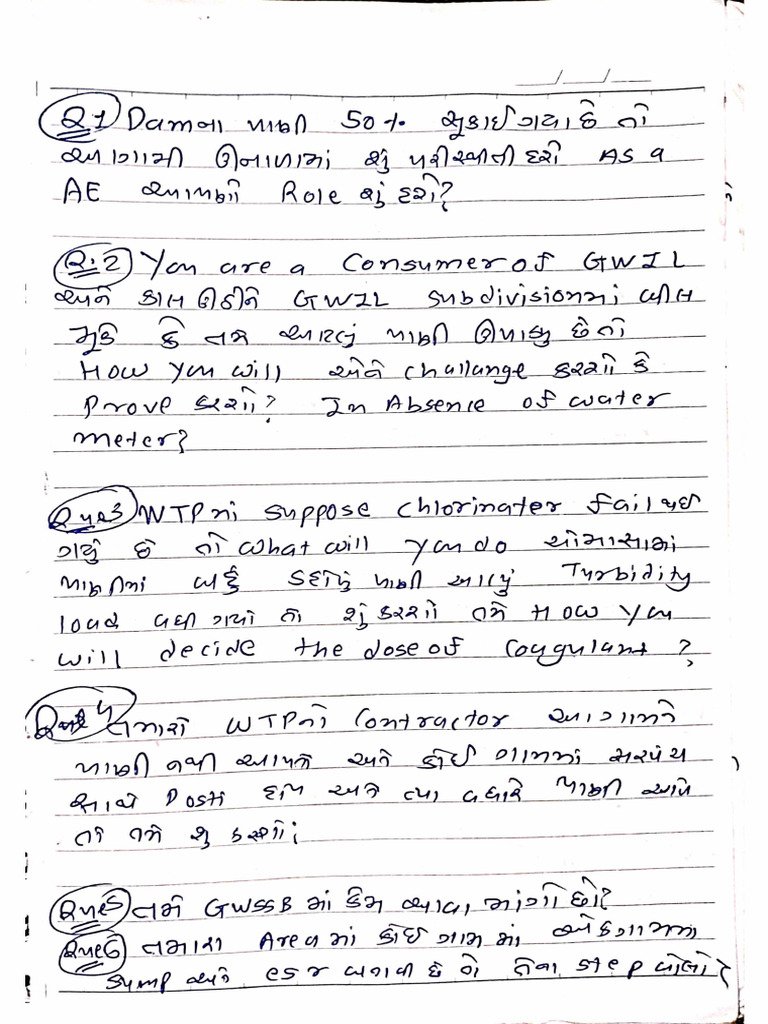 Q1 Damના પાણી 50% સૂકાઈ ગયા છે તો
આગામી ઊનાળામાં શું પરીસ્થીતી હશે AS a
AE આપણો Role શું હશે?
Q.2 You are a Consumer of GWIL
અને કાલ ઊઠીને GWIL subdivisionમાં બીલ
મુકે કે તમે આટલું પાણી ઊપાડ્યુ છે તો
How you will એને challange કરશો કે
Prove કરશો? In Absence of water
meter?
Que3 WTPમાં suppose chlorinater fail થઈ
ગયું છે તો what will you do ચોમાસામાં
પાણીમાં બહું ડહોળું પાણી આવ્યું Turbidity
load વધી ગયો તો શું કરશો તમે How you
will decide the dose of Coagulant?
Que 4 તમારો WTPનો Contractor આ ગામને
પાણી નથી આપતો અને કોઈ ગામમાં સરપંચ
સાથે દોસ્તી હોય અને ત્યા વધારે પાણી આપે
તો તમે શુ કરશો;
Que5 તમે GWSSB માં કેમ આવવા માંગો છો?
Que6 તમારા Area માં કોઈ ગામ માં એક ગામમાં
sump અને ESR બનાવી છે તો તેના step બોલો?